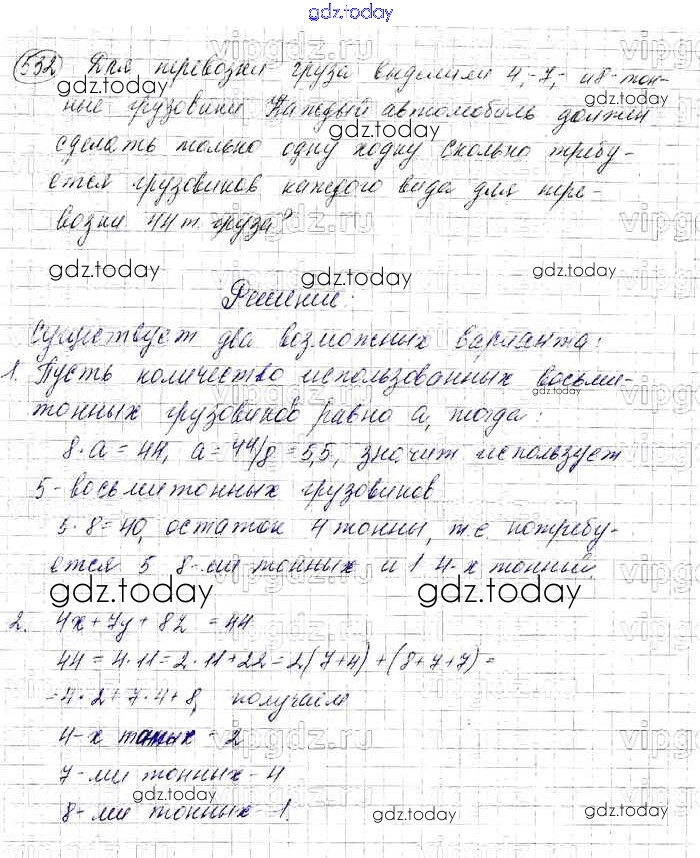 gdz.today
532 Для перевозки груза выделили 4,-7,- и 8-тон-
ные грузовики Каждый автомобиль должен
сделать только одну ходку Сколько требу-
ется грузовиков каждого вида для пере-
возки 44 т груза?
Решение:
Существует два возможных варианта:
1. Пусть количество использованных восьми-
тонных грузовиков равно a, тогда:
8·a=44, a=44/8=5,5, значит использует
5-восьмитонных грузовиков
5·8=40, остаток 4 тонны, т.е потребу-
ется 5 8-ми тонных и 1 4-х тонный.
2. 4x+7y+8z=44
44=4·11=2·11+22=2(7+4)+(8+7+7)=
=4·2+7·4+8, получаем
4-х тонных - 2
7-ми тонных - 4
8-ми тонных - 1.